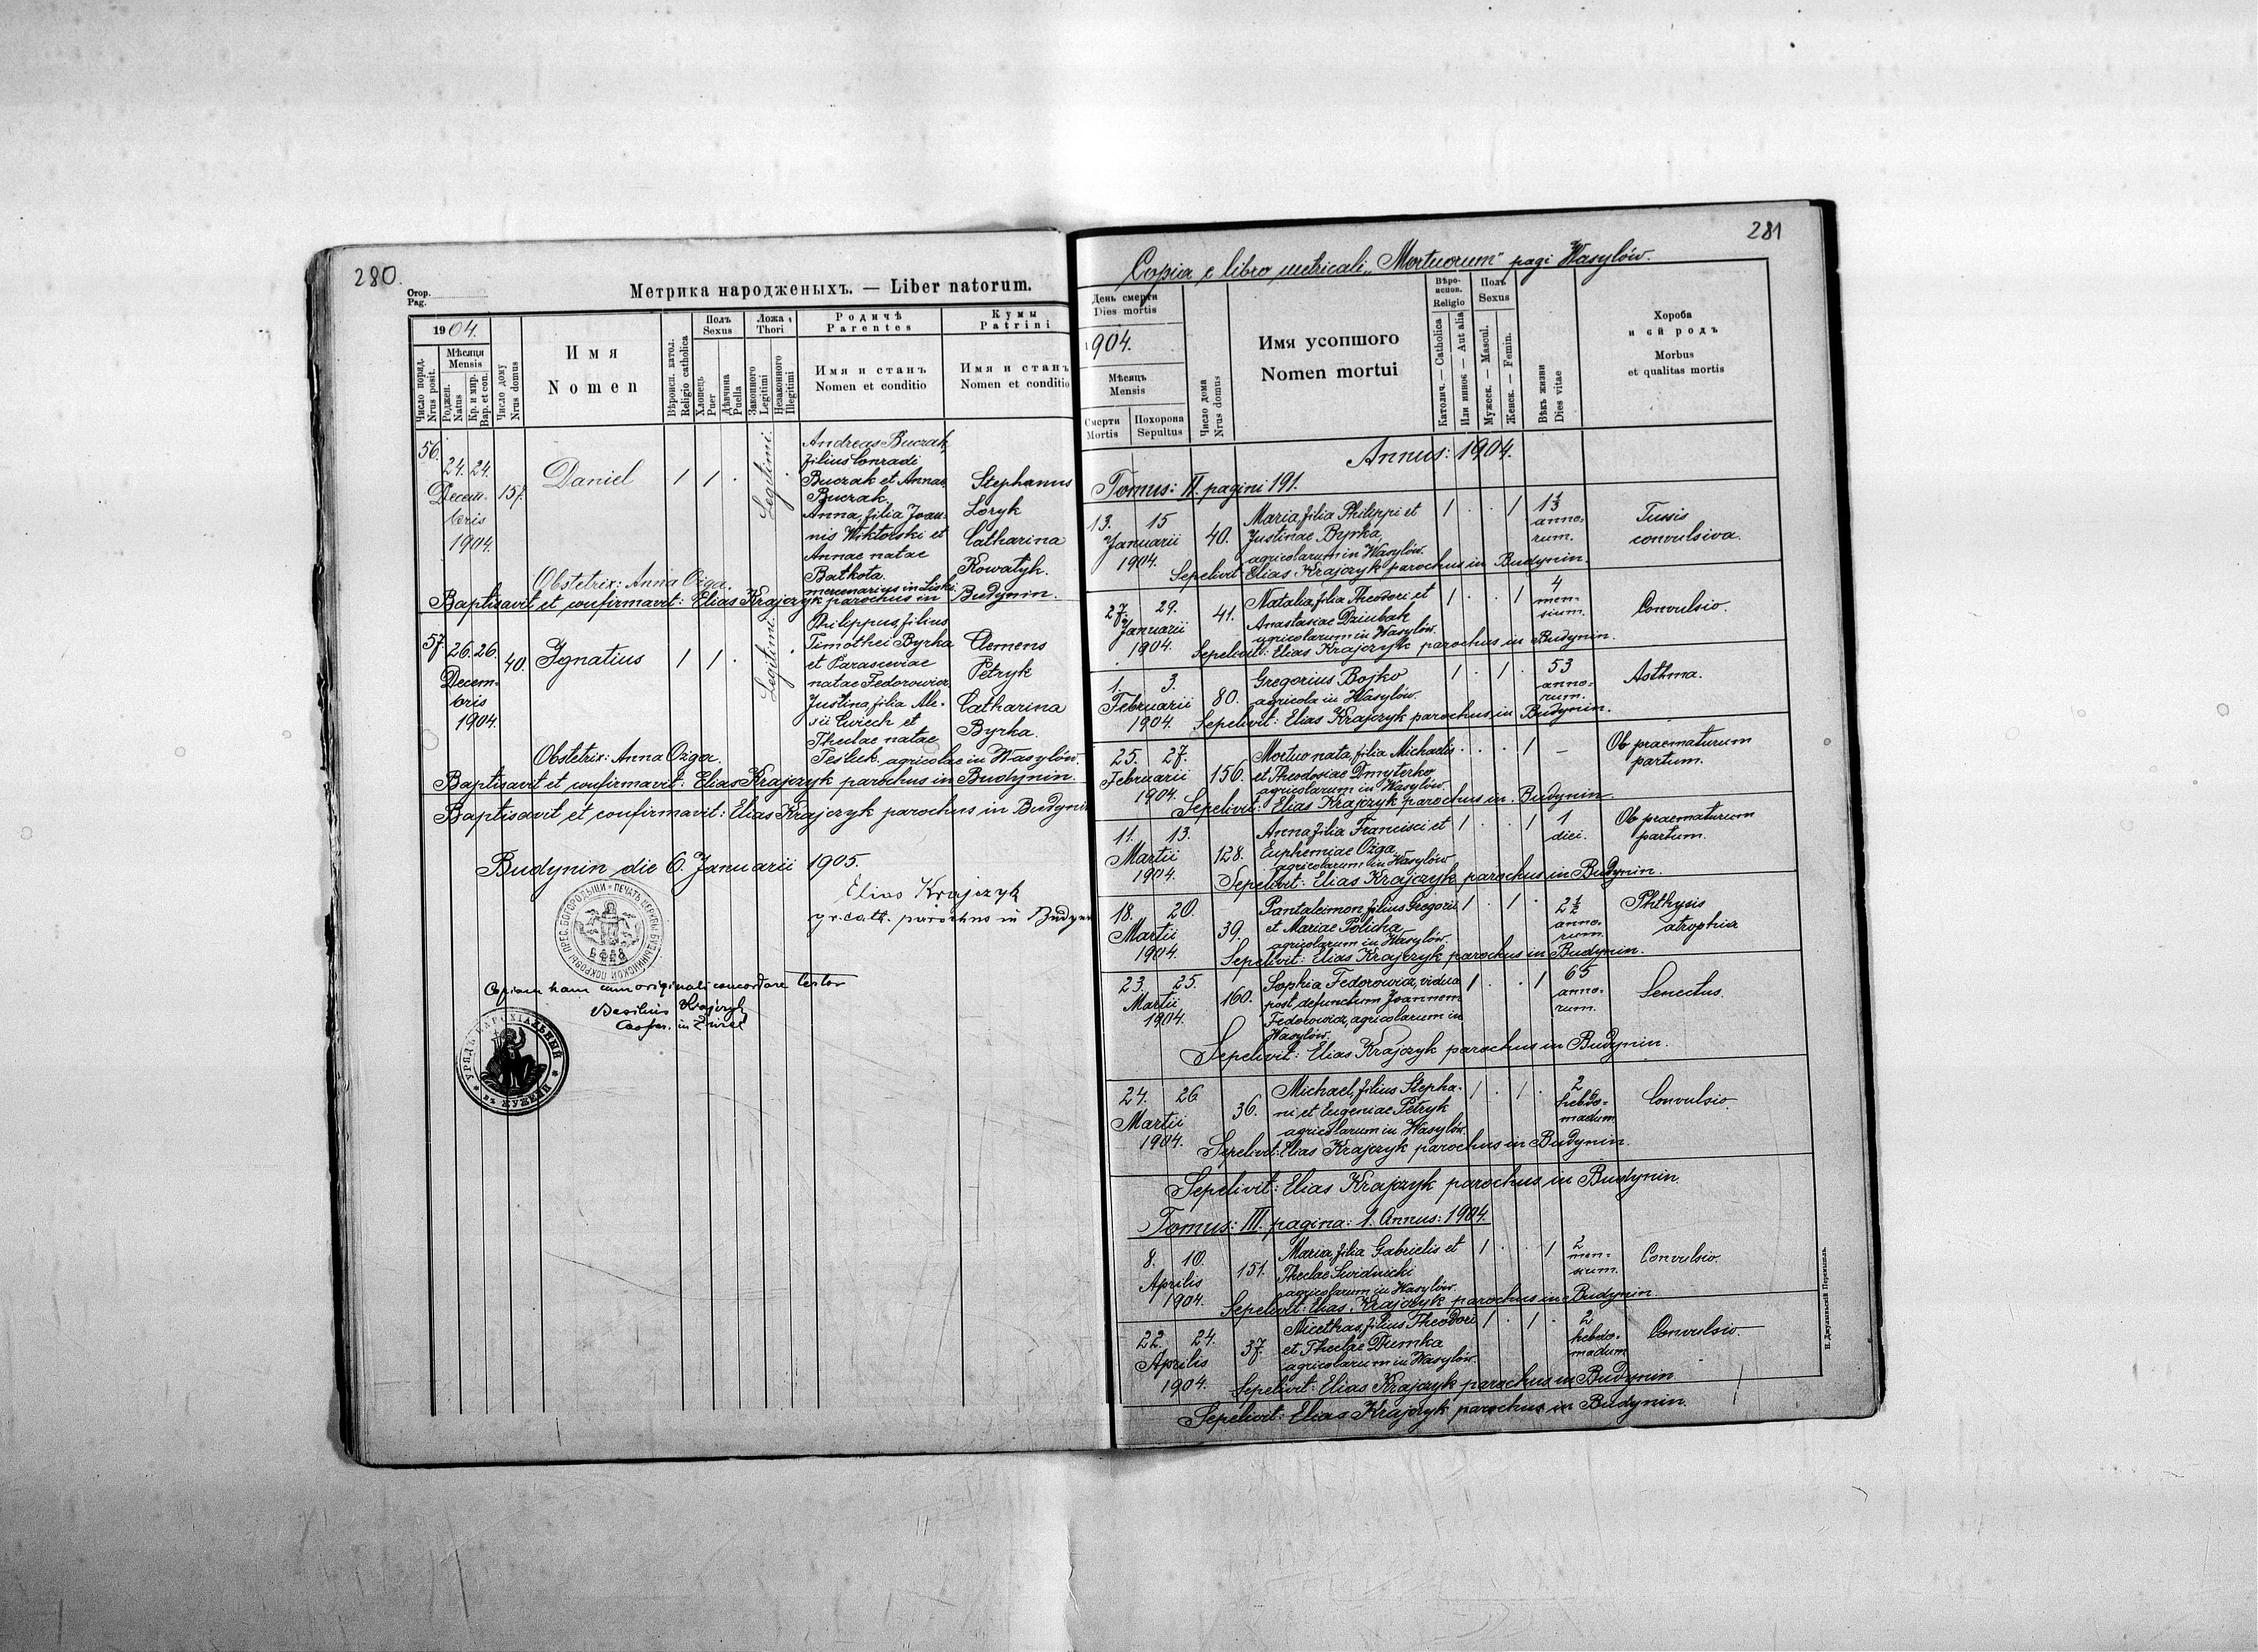 280.
Стор.
Pag.
Метрика народженыхъ. — Liber natorum.
1904.
Число поряд.
Nrus posit.
Мѣсяця
Mensis
Роджен.
Natus
Кр. и мир.
Bap. et con.
Число дому
Nrus domus
Имя
Nomen
Вѣроисп. катол.
Religio catholica
Полъ
Sexus
Хлопець
Puer
Дѣвчина
Puella
Ложа
Thori
Законного
Legitimi
Незаконного
Illegitimi
Родичѣ
Parentes
Имя и станъ
Nomen et conditio
Кумы
Patrini
Имя и станъ
Nomen et conditio
56.
24. 24.
Decem-
bris
1904.
157.
Daniel
1 1 .
Legitimi.
Andreas Buczak,
filius Conradi
Buczak et Annae
Buczak.
Anna, filia Joan-
nis Wiktorski et
Annae natae
Batkota.
mercenarius in Liski.
Stephanus
Loryk
Catharina
Kowatyk.
Obstetrix: Anna Ożga.
Baptisavit et confirmavit: Elias Krajczyk parochus in Budynin.
57.
26. 26.
Decem-
bris
1904.
40.
Ignatius
1 1 .
Legitimi.
Philippus, filius
Timothei Byrka
et Parasceviae
natae Fedorowicz,
Justina, filia Ale-
xii Cwiech et
Theclae natae
Tesluk. agricolae in Wasylów.
Clemens
Petryk
Catharina
Byrka.
Obstetrix: Anna Ożga.
Baptisavit et confirmavit: Elias Krajczyk parochus in Budynin.
Baptisavit et confirmavit: Elias Krajczyk parochus in Budynin
Budynin die 6. Januarii 1905.
Elias Krajczyk
gr. cath. parochus in Budyn
Copiam hanc cum originali concordare testor
Basilius Krajczyk
281
Copia e libro metricali „Mortuorum" pagi Wasylów.
День смерти
Dies mortis
1904.
Мѣсяць
Mensis
Смерти
Mortis
Похорона
Sepultus
Число дома
Nrus domus
Имя усопшого
Nomen mortui
Вѣро-
испов.
Religio
Католич. — Catholica
Или инное — Aut alia
Полъ
Sexus
Мужеск. — Mascul.
Женск. — Femin.
Вѣкъ жизни
Dies vitae
Хороба
и єй родъ
Morbus
et qualitas mortis
Annus: 1904.
Tomus: II. pagini 191.
13. 15
Januarii
1904.
40.
Maria, filia Philippi et
Justinae Byrka,
agricolarum in Wasylów.
1 . . 1
1 1/2
anno-
rum.
Tussis
convulsiva.
Sepelivit: Elias Krajczyk parochus in Budynin.
27. 29.
Januarii
1904.
41.
Natalia, filia Theodori et
Anastasiae Dziubak
agricolarum in Wasylów.
1 . . 1
4
men-
sium.
Convulsio.
Sepelivit: Elias Krajczyk parochus in Budynin.
1. 3.
Februarii
1904.
80.
Gregorius Bojko
agricola in Wasylów.
1 . 1 .
53
anno-
rum.
Asthma.
Sepelivit: Elias Krajczyk parochus in Budynin.
25. 27.
Februarii
1904.
156.
Mortuo nata, filia Michaelis
et Theodosiae Dmyterko,
agricolarum in Wasylów.
. . . 1
—
Ob praematurum
partum.
Sepelivit: Elias Krajczyk parochus in Budynin.
11. 13.
Martii
1904.
128.
Anna, filia Francisci et
Euphemiae Ożga.
agricolarum in Wasylów
1 . . 1
1
diei.
Ob praematurum
partum.
Sepelivit: Elias Krajczyk parochus in Budynin.
18. 20.
Martii
1904.
39.
Pantaleimon, filius Gregorii
et Mariae Policha,
agricolarum in Wasylów.
1 . 1 .
2 1/2
anno-
rum.
Phthysis
atrophia
Sepelivit: Elias Krajczyk parochus in Budynin.
23. 25.
Martii
1904.
160.
Sophia Fedorowicz, vidua
post defunctum Joannem
Fedorowicz, agricolarum in
Wasylów.
1 . . 1
65
anno-
rum.
Senectus.
Sepelivit: Elias Krajczyk parochus in Budynin.
24. 26
Martii
1904.
36.
Michael, filius Stepha-
ni et Eugeniae Petryk
agricolarum in Wasylów.
1 . 1 .
2
hebdo-
madum
Convulsio.
Sepelivit: Elias Krajczyk parochus in Budynin.
Sepelivit: Elias Krajczyk parochus in Budynin.
Tomus: III. pagina: 1. Annus: 1904.
8. 10.
Aprilis
1904.
151.
Maria, filia Gabrielis et
Theclae Swidnicki
agricolarum in Wasylów.
1 . . 1
2
men-
sium.
Convulsio.
Sepelivit: Elias Krajczyk parochus in Budynin.
22. 24.
Aprilis
1904.
37.
Nicethas, filius Theodori
et Theclae Dumka
agricolarum in Wasylów.
1 . 1 .
2
hebdo-
madum
Convulsio.
Sepelivit: Elias Krajczyk parochus in Budynin
Sepelivit: Elias Krajczyk parochus in Budynin.